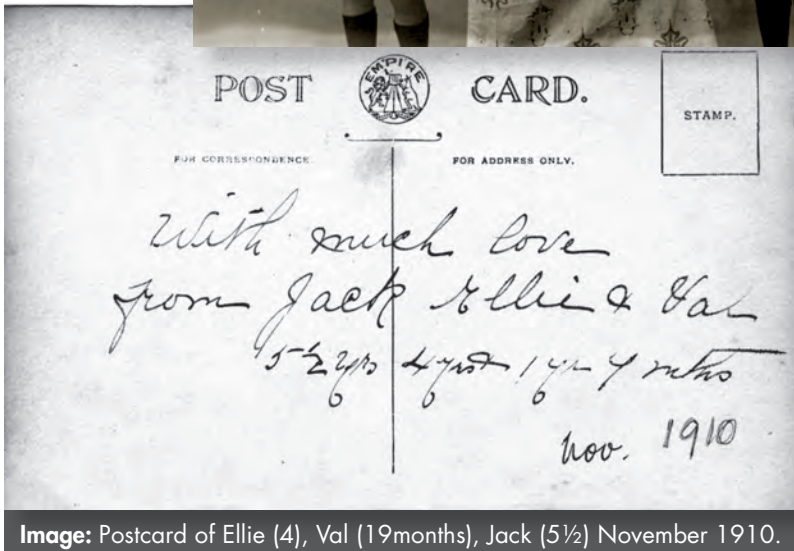 POST EMPIRE CARD.
STAMP.
FOR CORRESPONDENCE. FOR ADDRESS ONLY.
With much love
from Jack Ellie & Val
5½ yrs 4 yrs 1 yr 7 mths
Nov. 1910
Image: Postcard of Ellie (4), Val (19months), Jack (5½) November 1910.